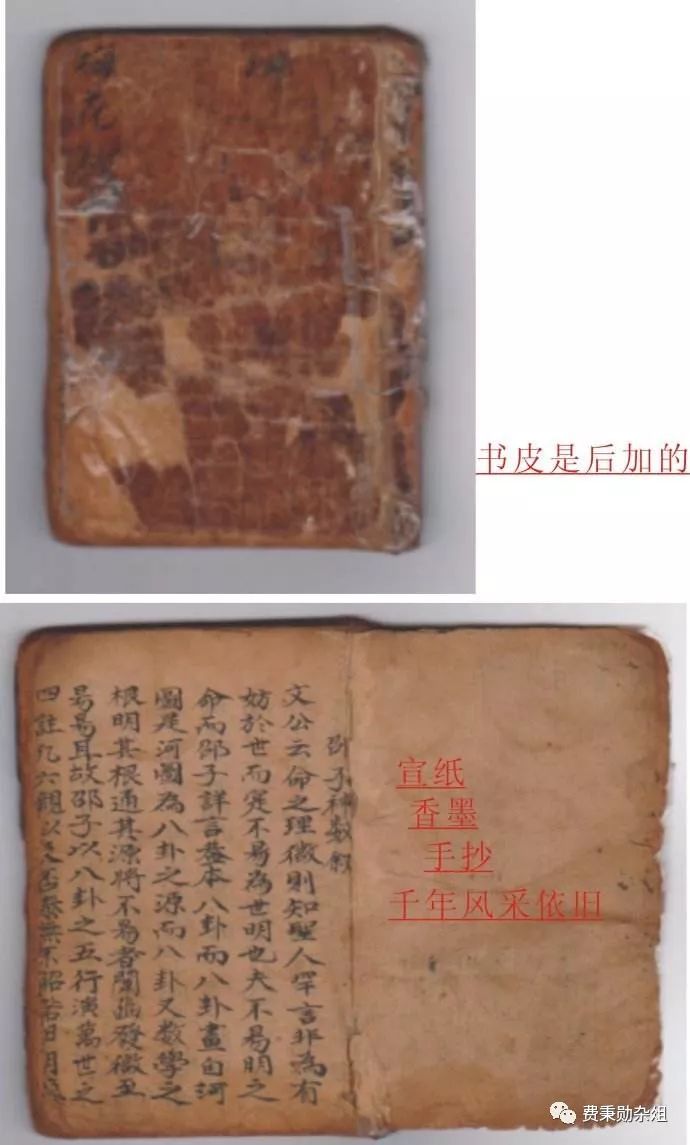 梅花
书皮是后加的
宣纸
香墨
手抄
千年风采依旧
邵子神数叙
文公云命之理微則知聖人罕言非為有
妨於世而寔不易為世明也夫不易明之
命而邵子詳言蓋本八卦而八卦畫自河
圖是河圖為八卦之源而八卦又数學之
根明其根通其源將不易者闡幽發微至
易易耳故邵子以八卦之五行演萬世之
四註九六親以及否泰無不昭若日月
费秉勋杂组